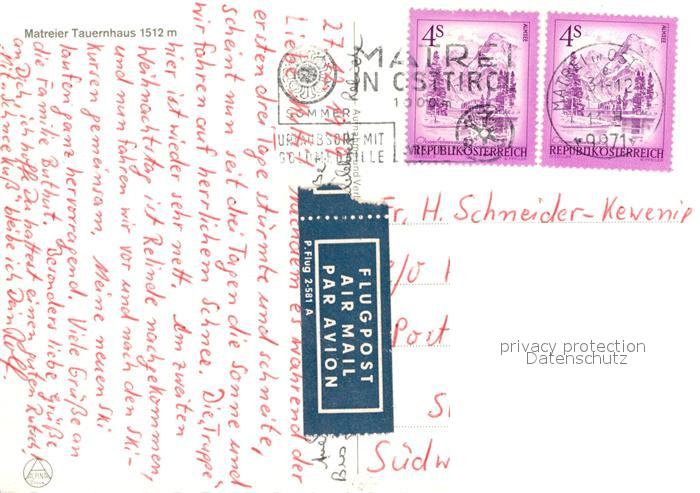 Matreier Tauernhaus 1512 m
27. 12.
Liebe
nachdem es während der
ersten drei Tage stürmte und schneite,
scheint nun seit drei Tagen die Sonne und
wir fahren auf herrlichem Schnee. Die Truppe
hier ist wieder sehr nett. Am zweiten
Weihnachtstag ist Relinde nachgekommen,
und nun fahren wir vor und nach den Ski-
kursen gemeinsam. Meine neuen Ski
laufen ganz hervorragend. Viele Grüße an
die Familie Buthut. Besonders liebe Grüße
an Dich, ich hoffe Du hattest einen guten Rutsch!
Mit "Schnee Kuß" bleibe ich Dein Rolf.
ALPINA
MATREI
IN OSTTIROL
1000 m
SOMMER
URLAUBSORT MIT
GOLDMEDAILLE
4S
ALMSEE
REPUBLIK ÖSTERREICH
4S
ALMSEE
REPUBLIK ÖSTERREICH
MATREI in OST
31.-12
9971
FLUGPOST
AIR MAIL
PAR AVION
P. Flug 2-581 A
Fr. H. Schneider-Kewenig
c/o
Post
Südw
privacy protection
Datenschutz